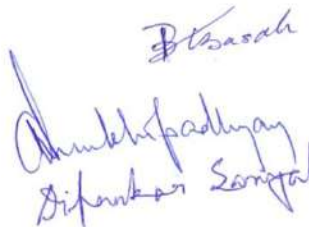 BBasak
AMukhopadhyay
Dipankar Sanyal